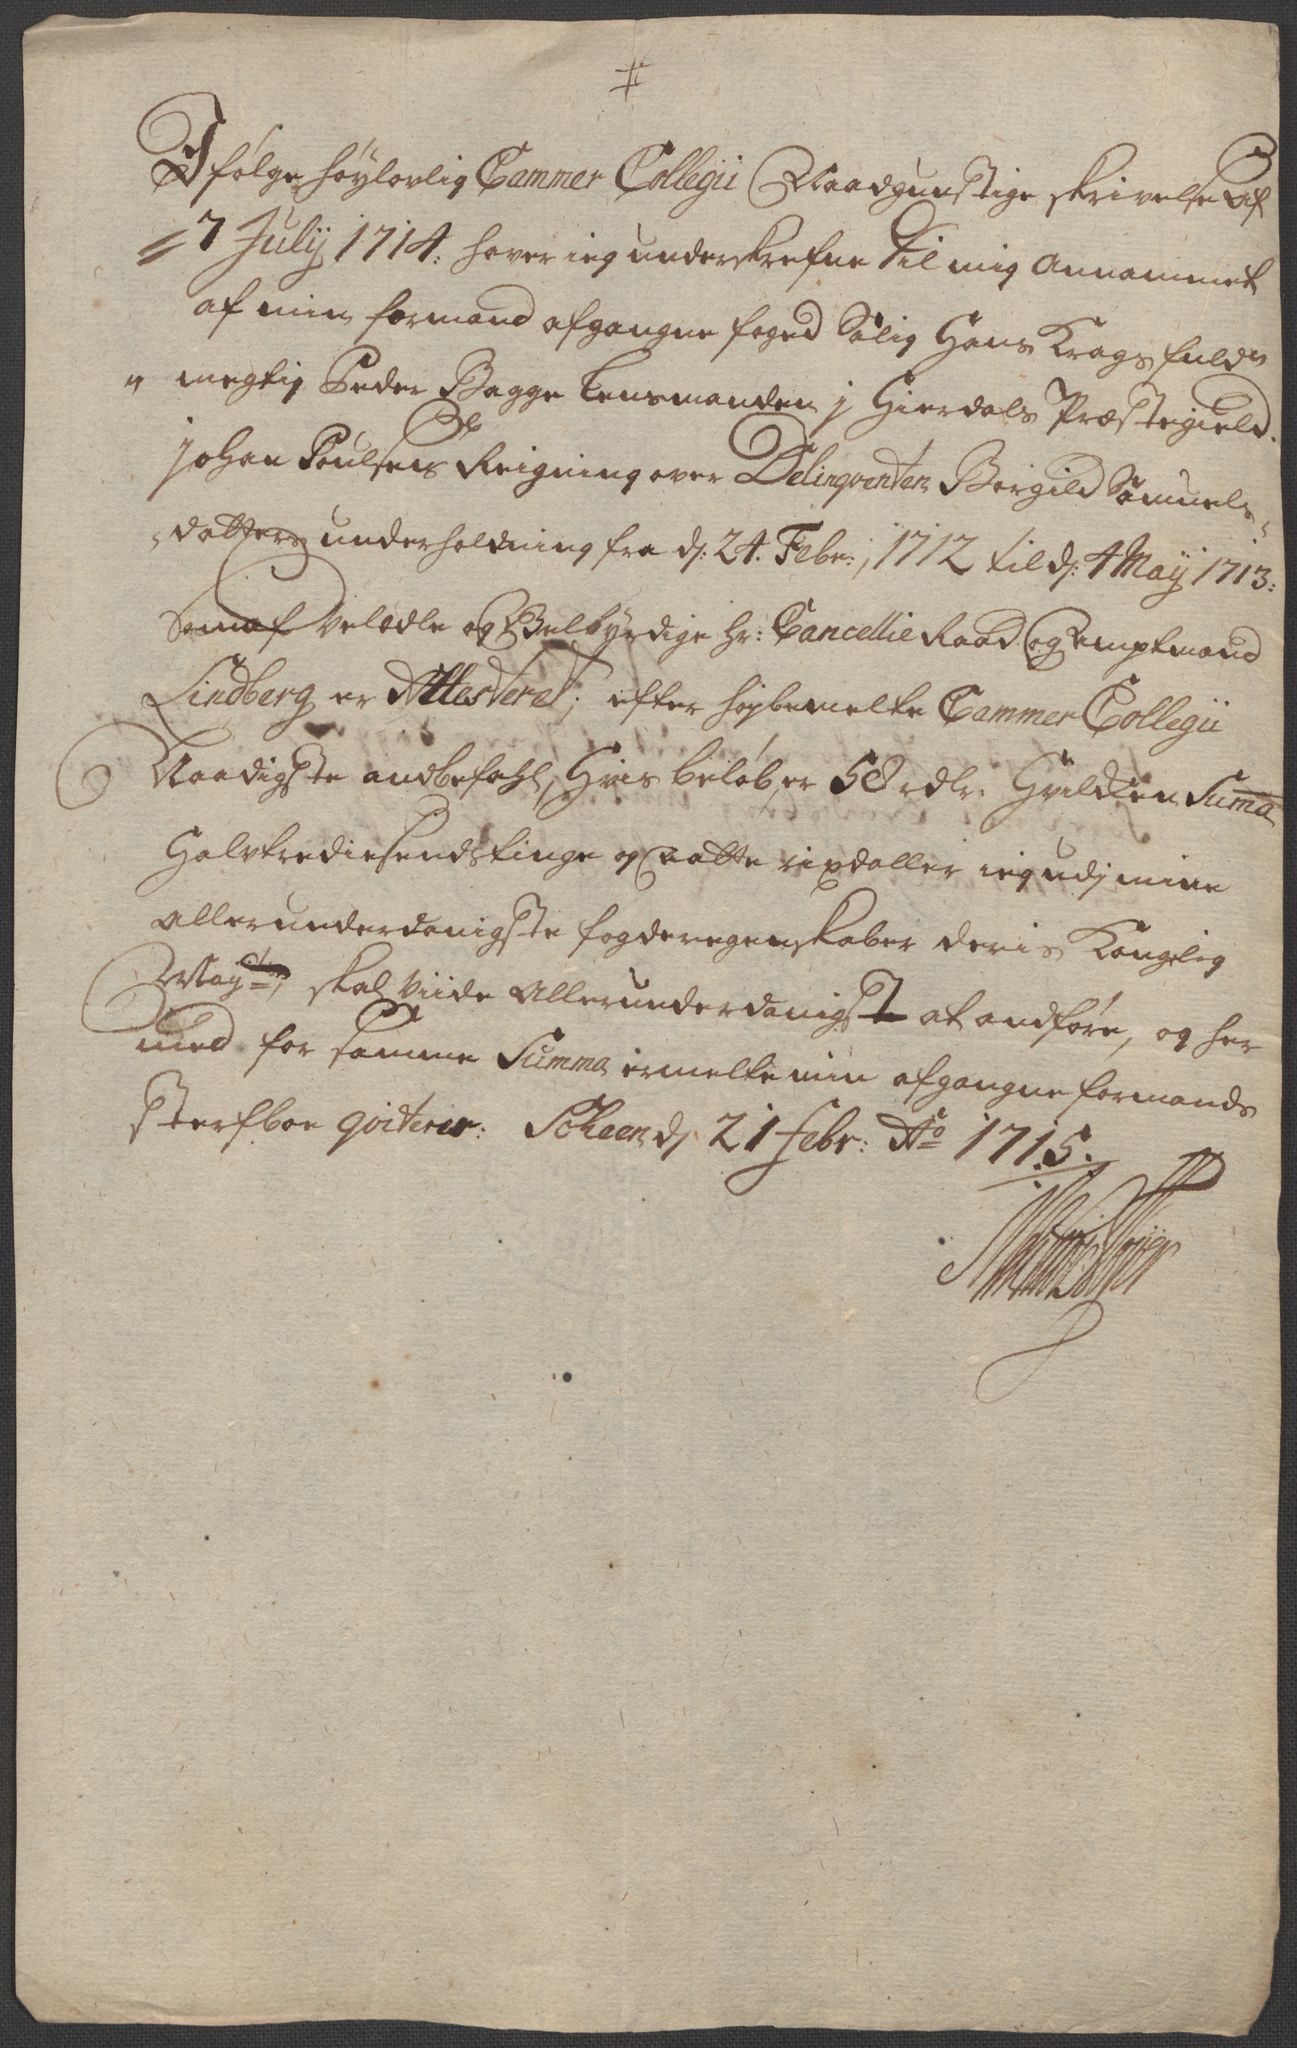 I følge höylovlig Cammer Collegii Naadgunstige skrivelse af
7 Julij 1714: haver ieg underskrefne til mig Annammet
af min formand afgangne foged Salig Hans Krags fuld-
megtig Peder Bagge Lensmanden j Hierdals Præstegield
johan Poulsens Reigning over Delinqventen Borgild Samuels-
datters underholdning fra d: 24. Febr: 1712 til d: 4 Maij 1713:
Som af Velædle og Velbyrdige hr: Cancellie Raad og Amptmand
Lindberg er Attesteret; efter høybemelte Cammer Collegii
Naadigste andbefahl, Hvis beløb er 58 rdlr. Hvilken Suma
Halvtrediesendstinge og aatte rixdaller ieg udj mine
allerunderdanigste fogderegenskaber deris Kongelig
May:tt skal viide Allerunderdanigst at andføre, og her
med for samme Summa ermelte min afgangne formands
sterfboe qviterer. Scheen d: 21 febr: Ao 1715.